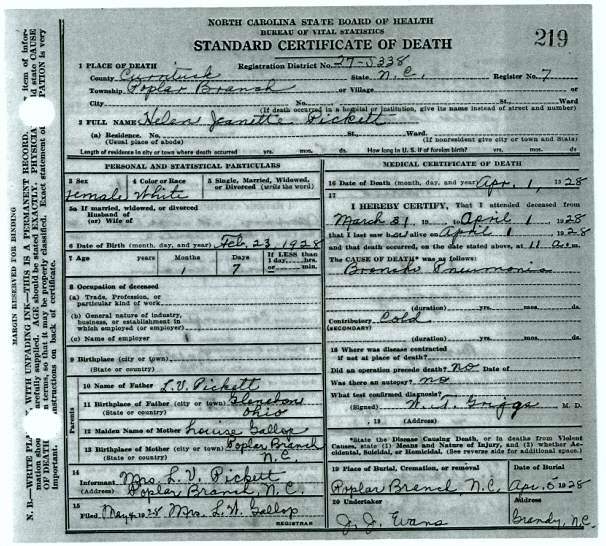 NORTH CAROLINA STATE BOARD OF HEALTH
BUREAU OF VITAL STATISTICS
STANDARD CERTIFICATE OF DEATH
219
1 PLACE OF DEATH Registration District No. 27-5338
County Currituck State N.C. Register No. 7
Township Poplar Branch or Village or
City No. St., Ward
(If death occurred in a hospital or institution, give its name instead of street and number)
2 FULL NAME Helen Jeanette Pickett
(a) Residence. No. St., Ward.
(Usual place of abode) (If nonresident give city or town and State)
Length of residence in city or town where death occurred yrs. mos. ds. How long in U. S. if of foreign birth? yrs. mos. ds.
PERSONAL AND STATISTICAL PARTICULARS
3 Sex 4 Color or Race 5 Single, Married, Widowed, or Divorced (write the word)
Female White
5a If married, widowed, or divorced
Husband of
(or) Wife of
6 Date of Birth (month, day, and year) Feb. 23, 1928
7 Age years Months Days If LESS than
1 day, hrs.
or min.
1 7
8 Occupation of deceased
(a) Trade, Profession, or
particular kind of work
(b) General nature of industry,
business, or establishment in
which employed (or employer)
(c) Name of employer
9 Birthplace (city or town)
(State or country)
Parents
10 Name of Father L. V. Pickett
11 Birthplace of Father (city or town)
(State or country) Ohio
12 Maiden Name of Mother Louise Gallop
13 Birthplace of Mother (city or town) Poplar Branch
(State or country) N.C.
14
Informant Mrs. L. V. Pickett
(Address) Poplar Branch, N.C.
15
Filed May 4, 1928 Mrs. L. W. Gallop
REGISTRAR
MEDICAL CERTIFICATE OF DEATH
16 Date of Death (month, day, and year) Apr. 1, 1928
17
I HEREBY CERTIFY, That I attended deceased from
March 31, 19 to April 1 1928
that I last saw her alive on April 1 1928
and that death occurred, on the date stated above, at 11 a.m.
The CAUSE OF DEATH was as follows:
Broncho Pneumonia
(duration) yrs. mos. ds.
Contributory Cold
(SECONDARY)
(duration) yrs. mos. ds.
18 Where was disease contracted
if not at place of death?
Did an operation precede death? No Date of
Was there an autopsy? no
What test confirmed diagnosis?
(Signed) W. T. Griggs M. D.
, 19 (Address)
*State the Disease Causing Death, or in deaths from Violent
Causes, state (1) Means and Nature of Injury, and (2) whether Accidental, Suicidal, or Homicidal. (See reverse side for additional space.)
19 Place of Burial, Cremation, or removal Date of Burial
Poplar Branch, N.C. Apr. 5 1928
20 Undertaker Address
J. J. Evans Grandy, N.C.
MARGIN RESERVED FOR BINDING
N. B.—WRITE PL WITH UNFADING INK—THIS IS A PERMANENT RECORD. item of infor-
mation shou arefully supplied. AGE should be stated EXACTLY. PHYSICIA ld state CAUSE
OF DEATH n terms, so that it may be properly classified. Exact statement of PATION is very
important. nstructions on back of certificate.